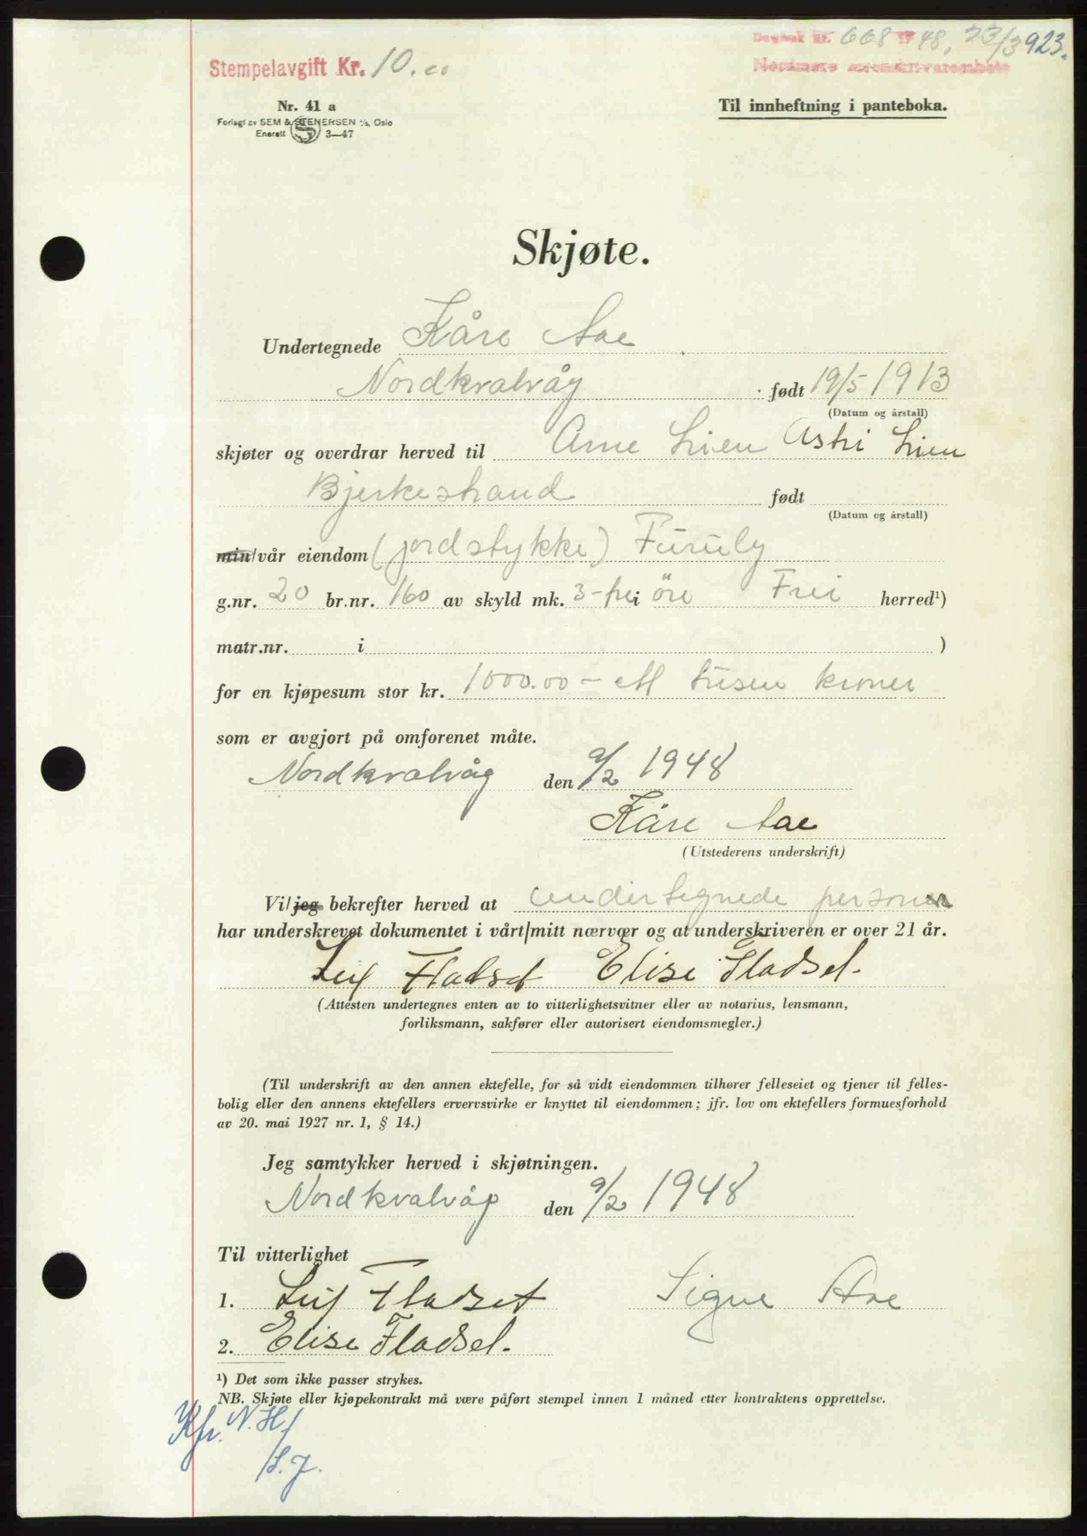 Dagbok nr. 668 19 48, 23/3 923.
Stempelavgift Kr. 10.00
Nordmøre sorenskriverembete
Nr. 41 a
Til innheftning i panteboka.
Forlagt av SEM & STENERSEN A/s, Oslo
Enerett S 3—47
Skjøte.
Undertegnede Kåre Aae
Nordkvalvåg født 19/5 1913
(Datum og årstall)
skjøter og overdrar herved til Arne Lien Astri Lien
Bjerkestrand født
(Datum og årstall)
min/vår eiendom (jordstykke) Furuly
g.nr. 20 br.nr. 160 av skyld mk. 3-frei øre Frei herred¹)
matr.nr. i )
for en kjøpesum stor kr. 1000.00 - Et tusen kroner
som er avgjort på omforenet måte.
Nordkvalvåg den 9/2 1948
Kåre Aae
(Utstederens underskrift)
Vi/jeg bekrefter herved at undertegnede personer
har underskrevet dokumentet i vårt/mitt nærvær og at underskriveren er over 21 år.
Leif Fladset Elise Fladset.
(Attesten undertegnes enten av to vitterlighetsvitner eller av notarius, lensmann,
forliksmann, sakfører eller autorisert eiendomsmegler.)
(Til underskrift av den annen ektefelle, for så vidt eiendommen tilhører felleseiet og tjener til felles-
bolig eller den annens ektefellers ervervsvirke er knyttet til eiendommen; jfr. lov om ektefellers formuesforhold
av 20. mai 1927 nr. 1, § 14.)
Jeg samtykker herved i skjøtningen.
Nordkvalvåg den 9/2 1948
Til vitterlighet
1. Leif Fladset Signe Aae
2. Elise Fladset.
¹) Det som ikke passer strykes.
NB. Skjøte eller kjøpekontrakt må være påført stempel innen 1 måned etter kontraktens opprettelse.
Kfr. N.H/
/S.J.